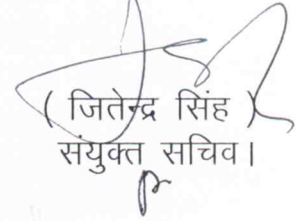 ( जितेन्द्र सिंह )
संयुक्त सचिव।